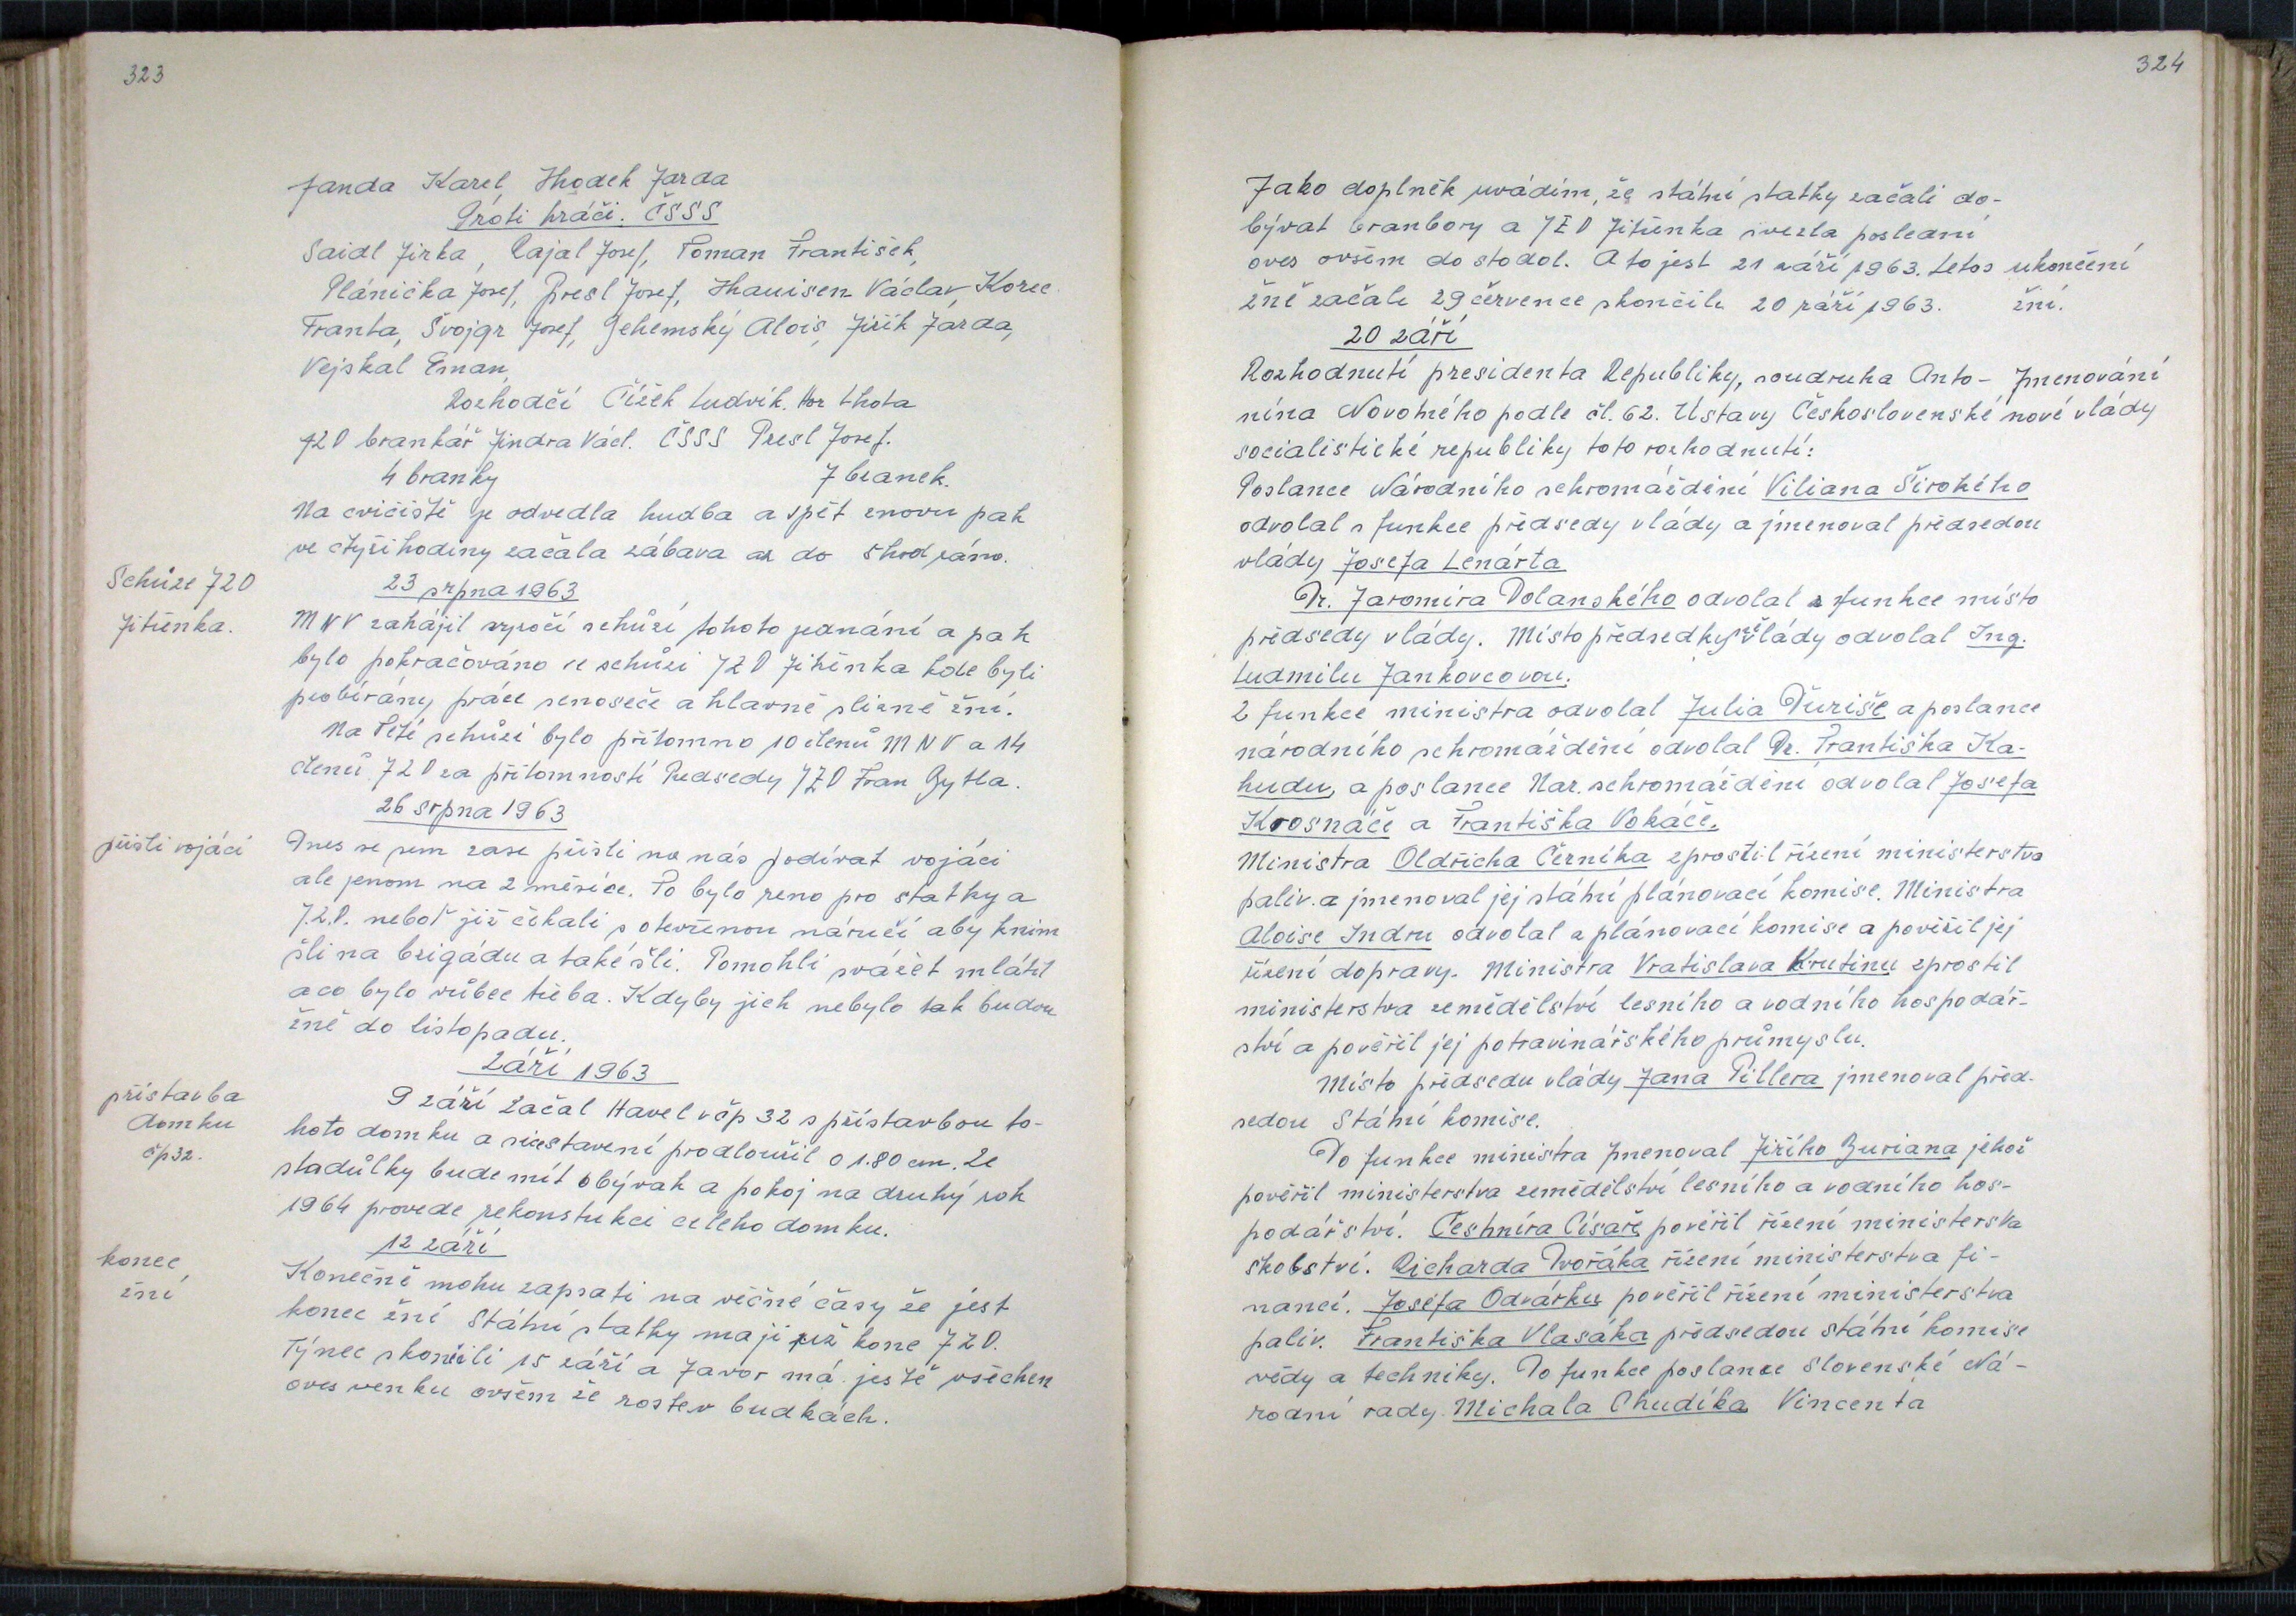 323
Janda Karel, Hodek Jarda
Proti hráči. ČSSS
Saidl Jirka, Rajal Josef, Toman František,
Plánička Josef, Presl Josef, Václav, Korec
Franta, Švojgr Josef, Alois, Jiřík Jarda,
Vejskal Eman,
Rozhodčí Čížek Ludvík. Hor Lhota
JZD brankář Jindra Václ. ČSSS Presl Josef.
4 branky 7 branek.
Na cvičiště je odvedla hudba a spět znovu pak
ve čtyři hodiny začala zábava až do ráno.
Schůze JZD
Jitřenka.
23 srpna 1963
MNV zahájil výročí schůzí tohoto jednání a pak
bylo pokračováno ve schůzi JZD Jitřenka kde byli
probírány práce senoseče a hlavně sklizně žní.
Na Této schůzi bylo přítomno 10 členů MNV a 14
členů JZD za přítomností Předsedy JZD Fran Bytla.
26 srpna 1963
přišli vojáci
Dnes se sem zase přišli na nás podívat vojáci
ale jenom na 2 měsíce. To bylo zeno pro statky a
J.Z.D. neboť již čekali s otevřenou náručí aby knim
šli na brigádu a také šli. Pomohli svážet mlátit
a co bylo vůbec třeba. Kdyby jich nebylo tak budou
žně do listopadu.
Září 1963
přístavba
domku
čp 32.
9 září začal Havel v čp 32 s přístavbou to-
hoto domku a stavení prodloužil o 1.80 cm. Ze
stadůlky bude mít obývak a pokoj na druhý rok
1964 provede rekonstukci celeho domku.
12 září
konec
žní
Konečně mohu zapsati na věčné časy že jest
konec žní Státní statky mají již kone JZD.
Týnec skončili 15 září a Javor má ještě všechen
oves venku ovšem že roste v budkách.
324
Jako doplněk uvádím, že státní statky začali do-
bývat brambory a JZD Jitřenka svezla poslední
oves ovšem do stodol. A to jest 21 září 1963. Letos ukončení
žně začali 29 července skončili 20 září 1963. žní.
20 září
Rozhodnutí presidenta Republiky, soudruha Anto- Jmenování
nína Novotného podle čl. 62. Ústavy Československé nové vlády
socialistické republiky toto rozhodnutí:
Poslance Národního schromáždění Viliana Širokého
odvolal s funkce předsedy vlády a jmenoval předsedou
vlády Josefa Lenárta
Dr. Jaromíra Dolanského odvolal z funkce místo
předsedy vlády. Místopředsedkyně vlády odvolal Ing.
Ludmilu Jankovcovou.
Z funkce ministra odvolal Julia Ďuriše a poslance
národního schromáždění odvolal Dr. Františka Ka-
hudu, a poslance Nar. schromáždění odvolal Josefa
Krosnáče a Františka Vokáče.
Ministra Oldřicha Černíka zprostil řízení ministerstva
paliv. a jmenoval jej státní plánovací komise. Ministra
Aloise Indru odvolal z plánovací komise a pověřil jej
řízení dopravy. Ministra Vratislava Krutinu zprostil
ministerstva zemědělství lesního a vodního hospodář-
ství a pověřil jej potravinářského průmyslu.
Místo předsedu vlády Jana Pillera jmenoval před-
sedou Státní komise.
Do funkce ministra jmenoval Jiřího Buriana jehož
pověřil ministerstva zemědělství lesního a vodního hos-
podářství. Čestmíra Císaře, pověřil řízení ministerstva
školství. Richarda Dvořáka řízení ministerstva fi-
nancí. Josefa Odvárku pověřil řízení ministerstva
paliv. Františka Vlasáka předsedou státní komise
vědy a techniky. Do funkce poslance Slovenské Ná-
rodní rady. Michala Chudíka Vincenta